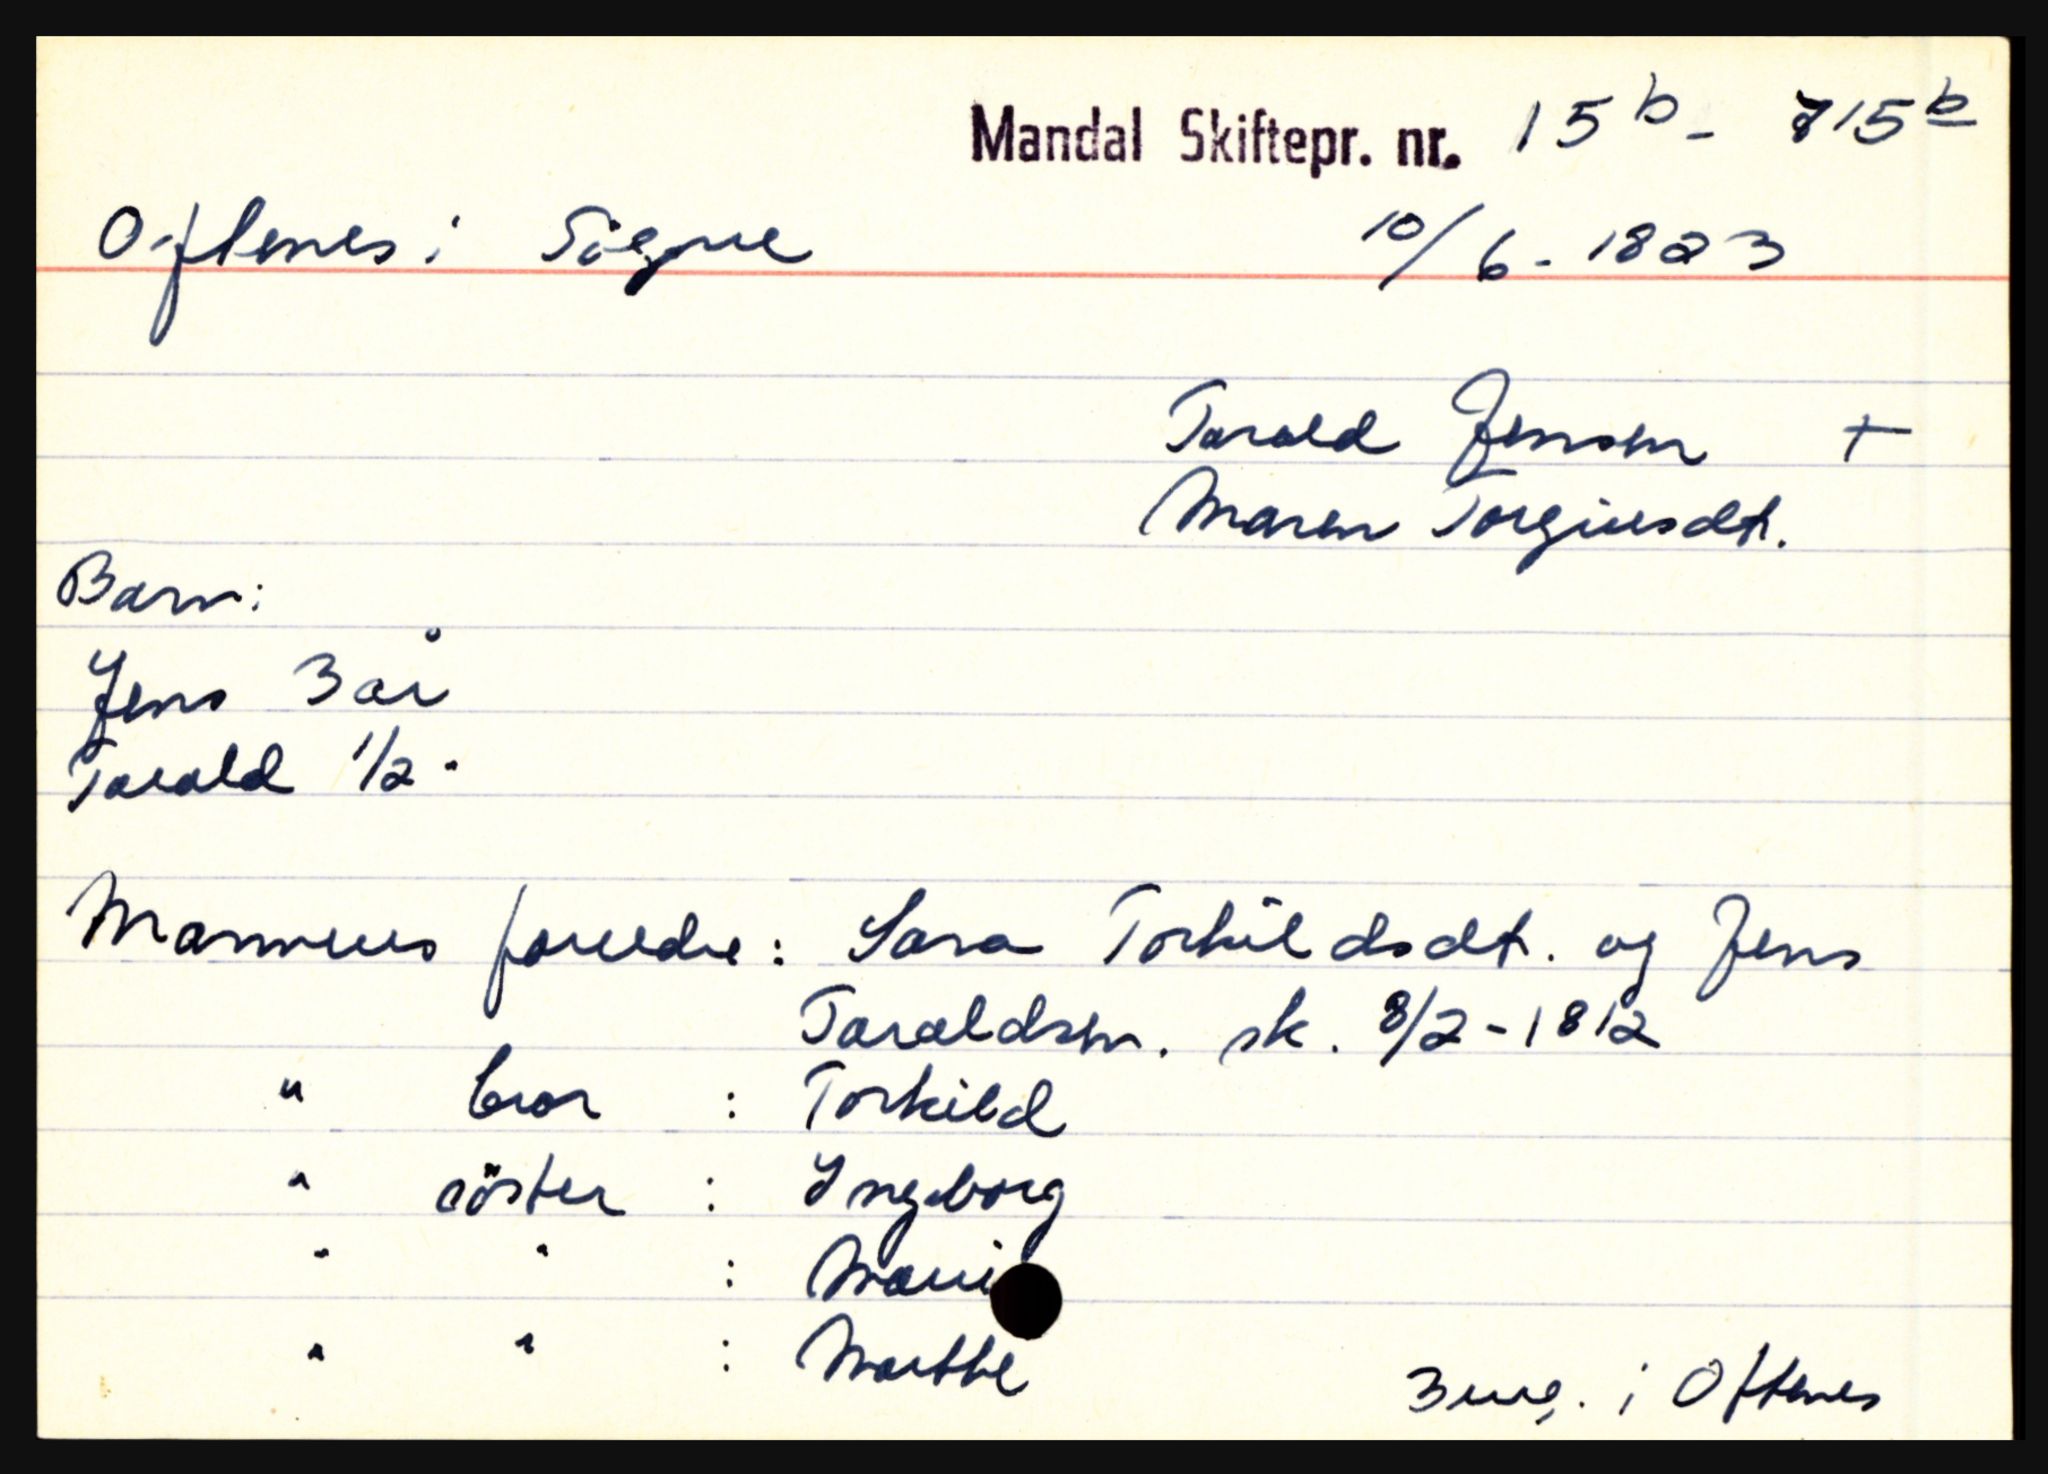 Mandal Skiftepr. nr. 15b - 715b
Oftenes i Sögne 10/6 - 1823
Tarald Jensen +
Maren Torgiusdt.
Barn:
Jens 3 år
Tarald 1/2 "
Mannens foreldre: Sara Torkildsdt. og Jens
Taraldsen. sk. 8/2 - 1812
" bror : Torkild
" söster : Ingeborg
" " : Mari
" " : Marthe
3 i Oftenes